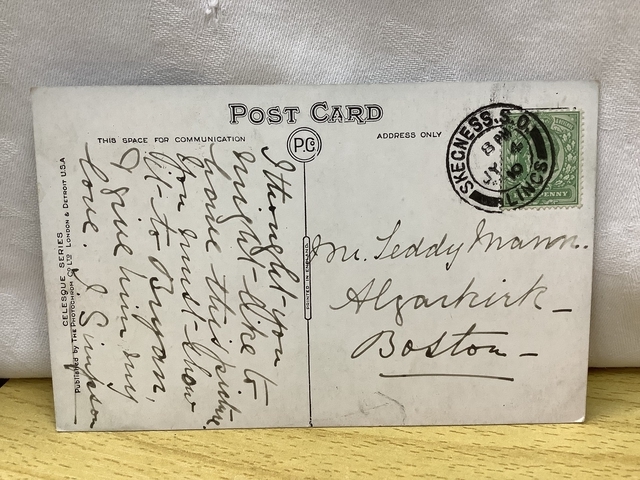 POST CARD
THIS SPACE FOR COMMUNICATION
P.C
ADDRESS ONLY
SKEGNESS. S.O.
8 PM
JY 4
LINCS
PENNY
I thought you
might like to
have this picture
You must show
it to Bryan,
& give him my
love. J Simpson
Mr. Teddy Mann.
Algarkirk
Boston
CELESQUE SERIES
Published by THE PHOTOCHROM CO LTD LONDON & DETROIT U.S.A
PRINTED IN ENGLAND